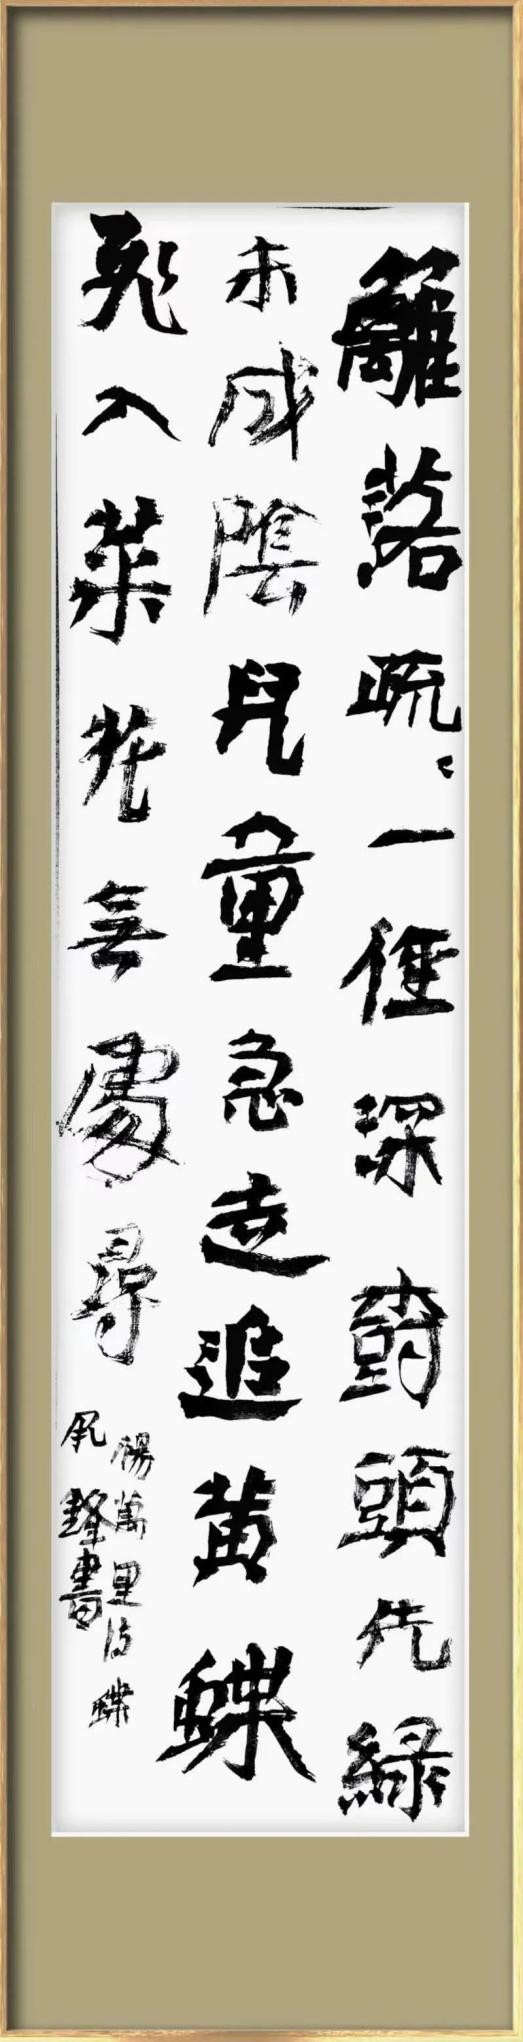 籬落疏〻一徑深樹頭先綠
未成陰兒童急走追黃蝶
飛入菜花無處尋
楊萬里诗蝶
鋒書